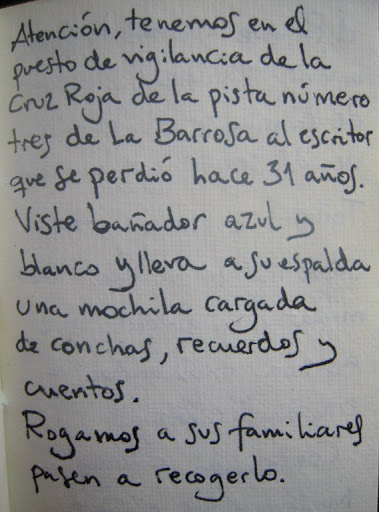 Atención, tenemos en el
puesto de vigilancia de la
Cruz Roja de la pista número
tres de La Barrosa al escritor
que se perdió hace 31 años.
Viste bañador azul y
blanco y lleva a su espalda
una mochila cargada
de conchas, recuerdos y
cuentos.
Rogamos a sus familiares
pasen a recogerlo.